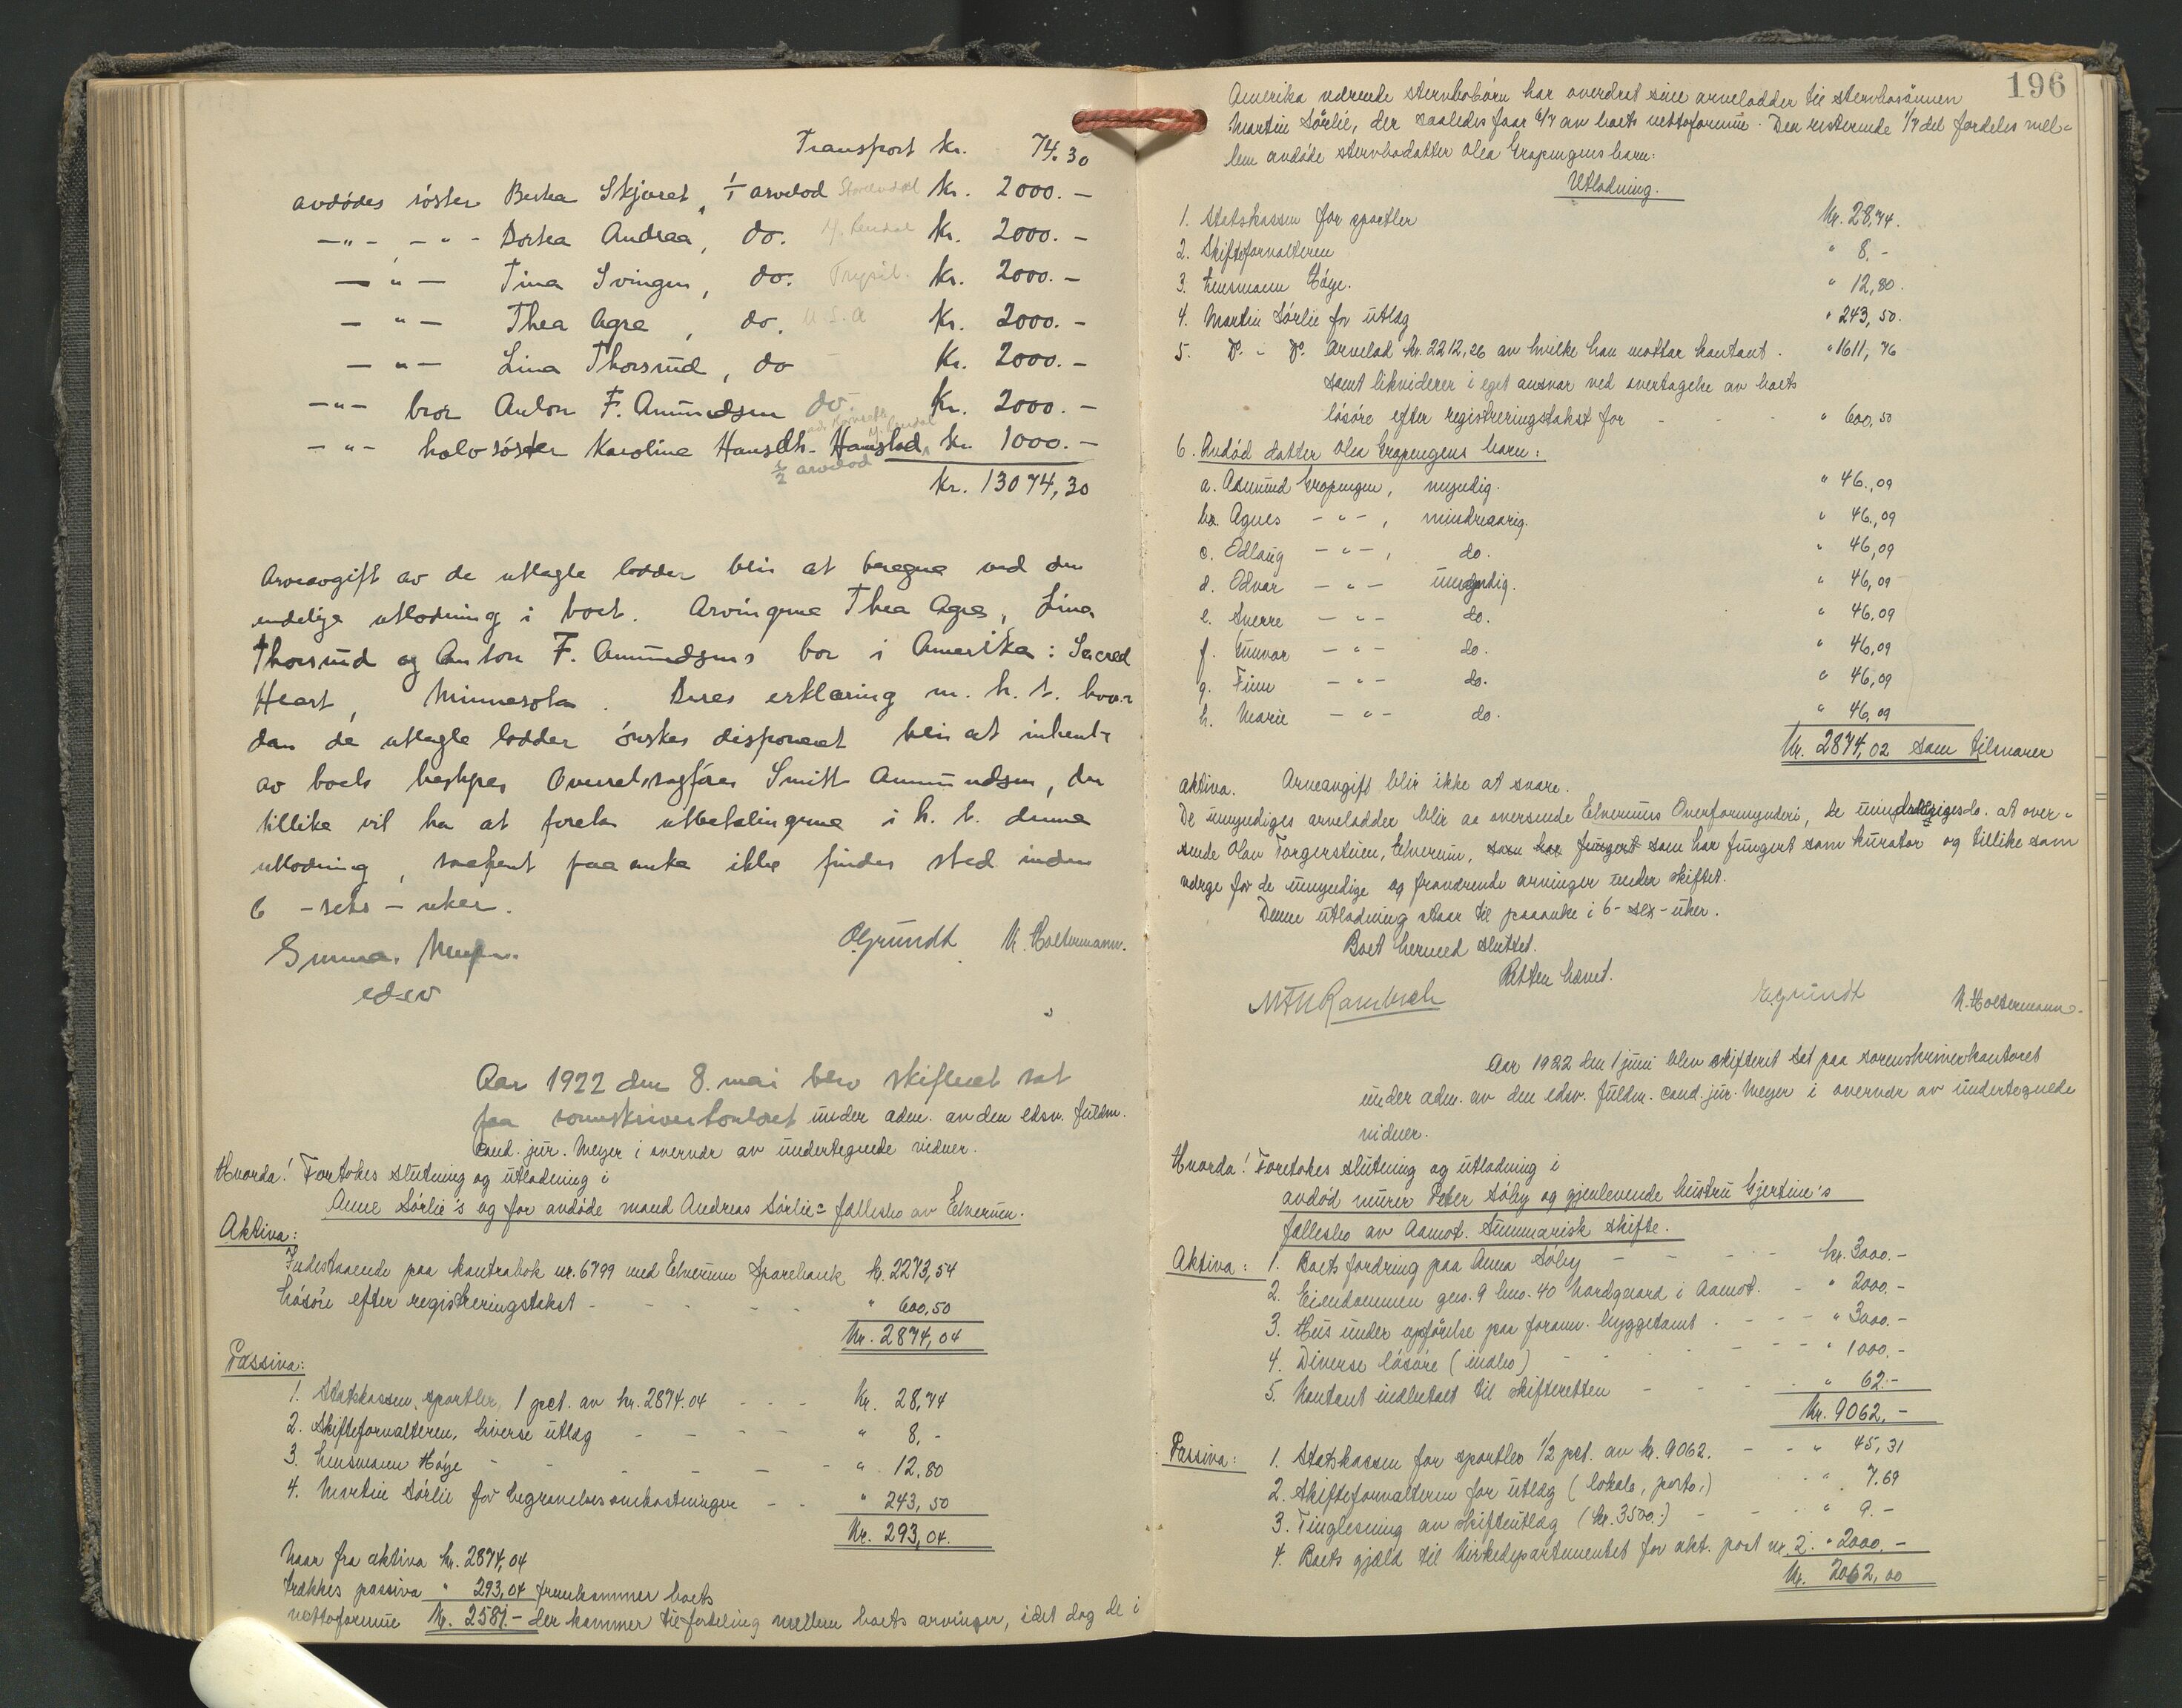 Transport kr. 74.30
avdödes söster Berthea Skjæret, 1/1 arvelod Storelvdal kr. 2000.-
-"- -"- Dorthea Andraa, do. Y. Rendal kr. 2000.-
-"- Tina Svingen, do. Trysil. kr. 2000.-
-"- Thea Agre, do. U.S.A kr. 2000.-
-"- Lina Thorsrud, do kr. 2000.-
-"- bror Anton F. Amundsen do. kr. 2000.-
-"- halvsöster Karoline Hansdtr. Hanestad, kr. 1000.-
1/2 arvelod
kr. 13074,30
Arveavgift av de utlagte lodder blir at beregne ved den
endelige utlodning i boet. Arvingerne Thea Agre, Lina
Thorsrud og Anton F. Amundsens bor i Amerika: Sacred
Heart, Minnesota. Deres erklæring m. h. t. hvor-
dan de utlagte lodder önskes disponeret blir at inhent-
av boets bestyrer Overretssagförer Smitt Amundsen, der
tillike vil ha at foreta utbetalingerne i h. t. denne
utlodning, saafremt paaanke ikke finder sted inden
6 -seks- uker.
edsv
O Grundt K. Holtermann.
Aar 1922 den 8. mai blev skifteret sat
paa sorenskriverkontoret under adm. av den edsv. fuldm.
cand. jur. Meyer i overvær av undertegnede vidner.
Hvorda! Foretokes slutning og utlodning i
Anne Sörlie's og for avdöde mand Andreas Sörlie's fællesbo av Elverum.
Aktiva:
Indestaaende paa kontrabok nr. 6799 med Elverum Sparebank kr. 2273,54
Lösöre efter registreringstakst - - - - " 600,50
Kr. 2874,04
Passiva:
1. Statskassen, sportler, 1 pct. av kr. 2874.04 - - - Kr. 28,74
2. Skifteforvalteren, diverse utlæg - - - - " 8,-
3. Lensmann Höye - - - - - - " 12.80
4. Martin Sörlie for begravelsesomkostninger - - " 243,50
Kr. 293,04.
Naar fra aktiva kr. 2874,04
trækkes passiva " 293,04 fremkommer boets
nettoformue Kr. 2581.- der kommer til fordeling mellem boets arvinger, idet dog de i
196
Amerika værende stervbobörn har overdret sine arvelodder til stervbosönnen
Martin Sörlie, der saaledes faar 6/7 av boets nettoformue. Den resterende 1/7 del fordeles mel-
lem avdöde stervbodatter Olea Grapengens barn:
Utlodning.
1. Statskassen for sportler Kr. 28,74.
2. Skifteforvalteren " 8.-
3. Lensmann Höye. " 12,80.
4. Martin Sörlie for utlæg " 243,50.
5. Do. - Do. Arvelod kr. 2212,26 av hvilke han mottar kontant. " 1611,76
samt likviderer i eget ansvar ved overtagelse av boets
lösöre efter registreringstakst for - - - " 600,50
6. Avdöd datter Olea Grapengens barn:
a. Asmund Grapengen, myndig. " 46,09
b. Agnes -"-, mindreaarig. " 46,09
c. Odlaug -"-, do. " 46,09
d. Odvar -"- umyndig. " 46,09
e. Sverre -"- do. " 46,09
f. Gunvor -"- do. " 46,09
g. Finn -"- do. " 46,09
h. Marie -"- do. " 46,09
Kr. 2874,02 som tilsvarer
aktiva. Arveavgift blir ikke at svare.
De umyndiges arvelodder blir at oversende Elverums Overformynderi, de mindreaariges do. at over-
sende Olav Torgerstuen, Elverum, som har fungert som har fungert som kurator og tillike som
værge for de umyndige og fraværende arvinger under skiftet.
Denne utlodning staar til paaanke i 6-sex-uker.
Boet hermed sluttet.
Retten hævet.
E Grundt K. Holtermann.
Aar 1922 den 1 juni blev skifteret sat paa sorenskriverkontoret
under adm. av den edsv. fuldm. cand. jur. Meyer i overvær av undertegnede
vidner.
Hvorda! Foretokes slutning og utlodning i
avdöd murer Peter Söby og gjenlevende hustru Gjertine's
fællesbo av Aamot. Summarisk skifte.
Aktiva: 1. Boets fordring paa Anna Söby - - - - kr. 3000.-
2. Eiendommen gno. 9 bno. 40 Nordgaard i Aamot. - " 2000.-
3. Hus under opförelse paa foranr. byggetomt. - - - " 3000.-
4. Diverse lösöre (indbo) - - - - - - " 1000.-
5. Kontant indbetalt til skifteretten - - - - " 62.-
Kr. 9062,-
Passiva: 1. Statskassen for sportler 1/2 pct. av kr. 9062. - - " 45,31
2. Skifteforvalteren for utlæg (lokale, porto,) " 7.69
3. Tinglesning av skifteutlæg (kr. 3500.) - - " 9.-
4. Boets gjæld til Kirkedepartementet for akt. post nr. 2. " 2000.-
Kr. 2062,00